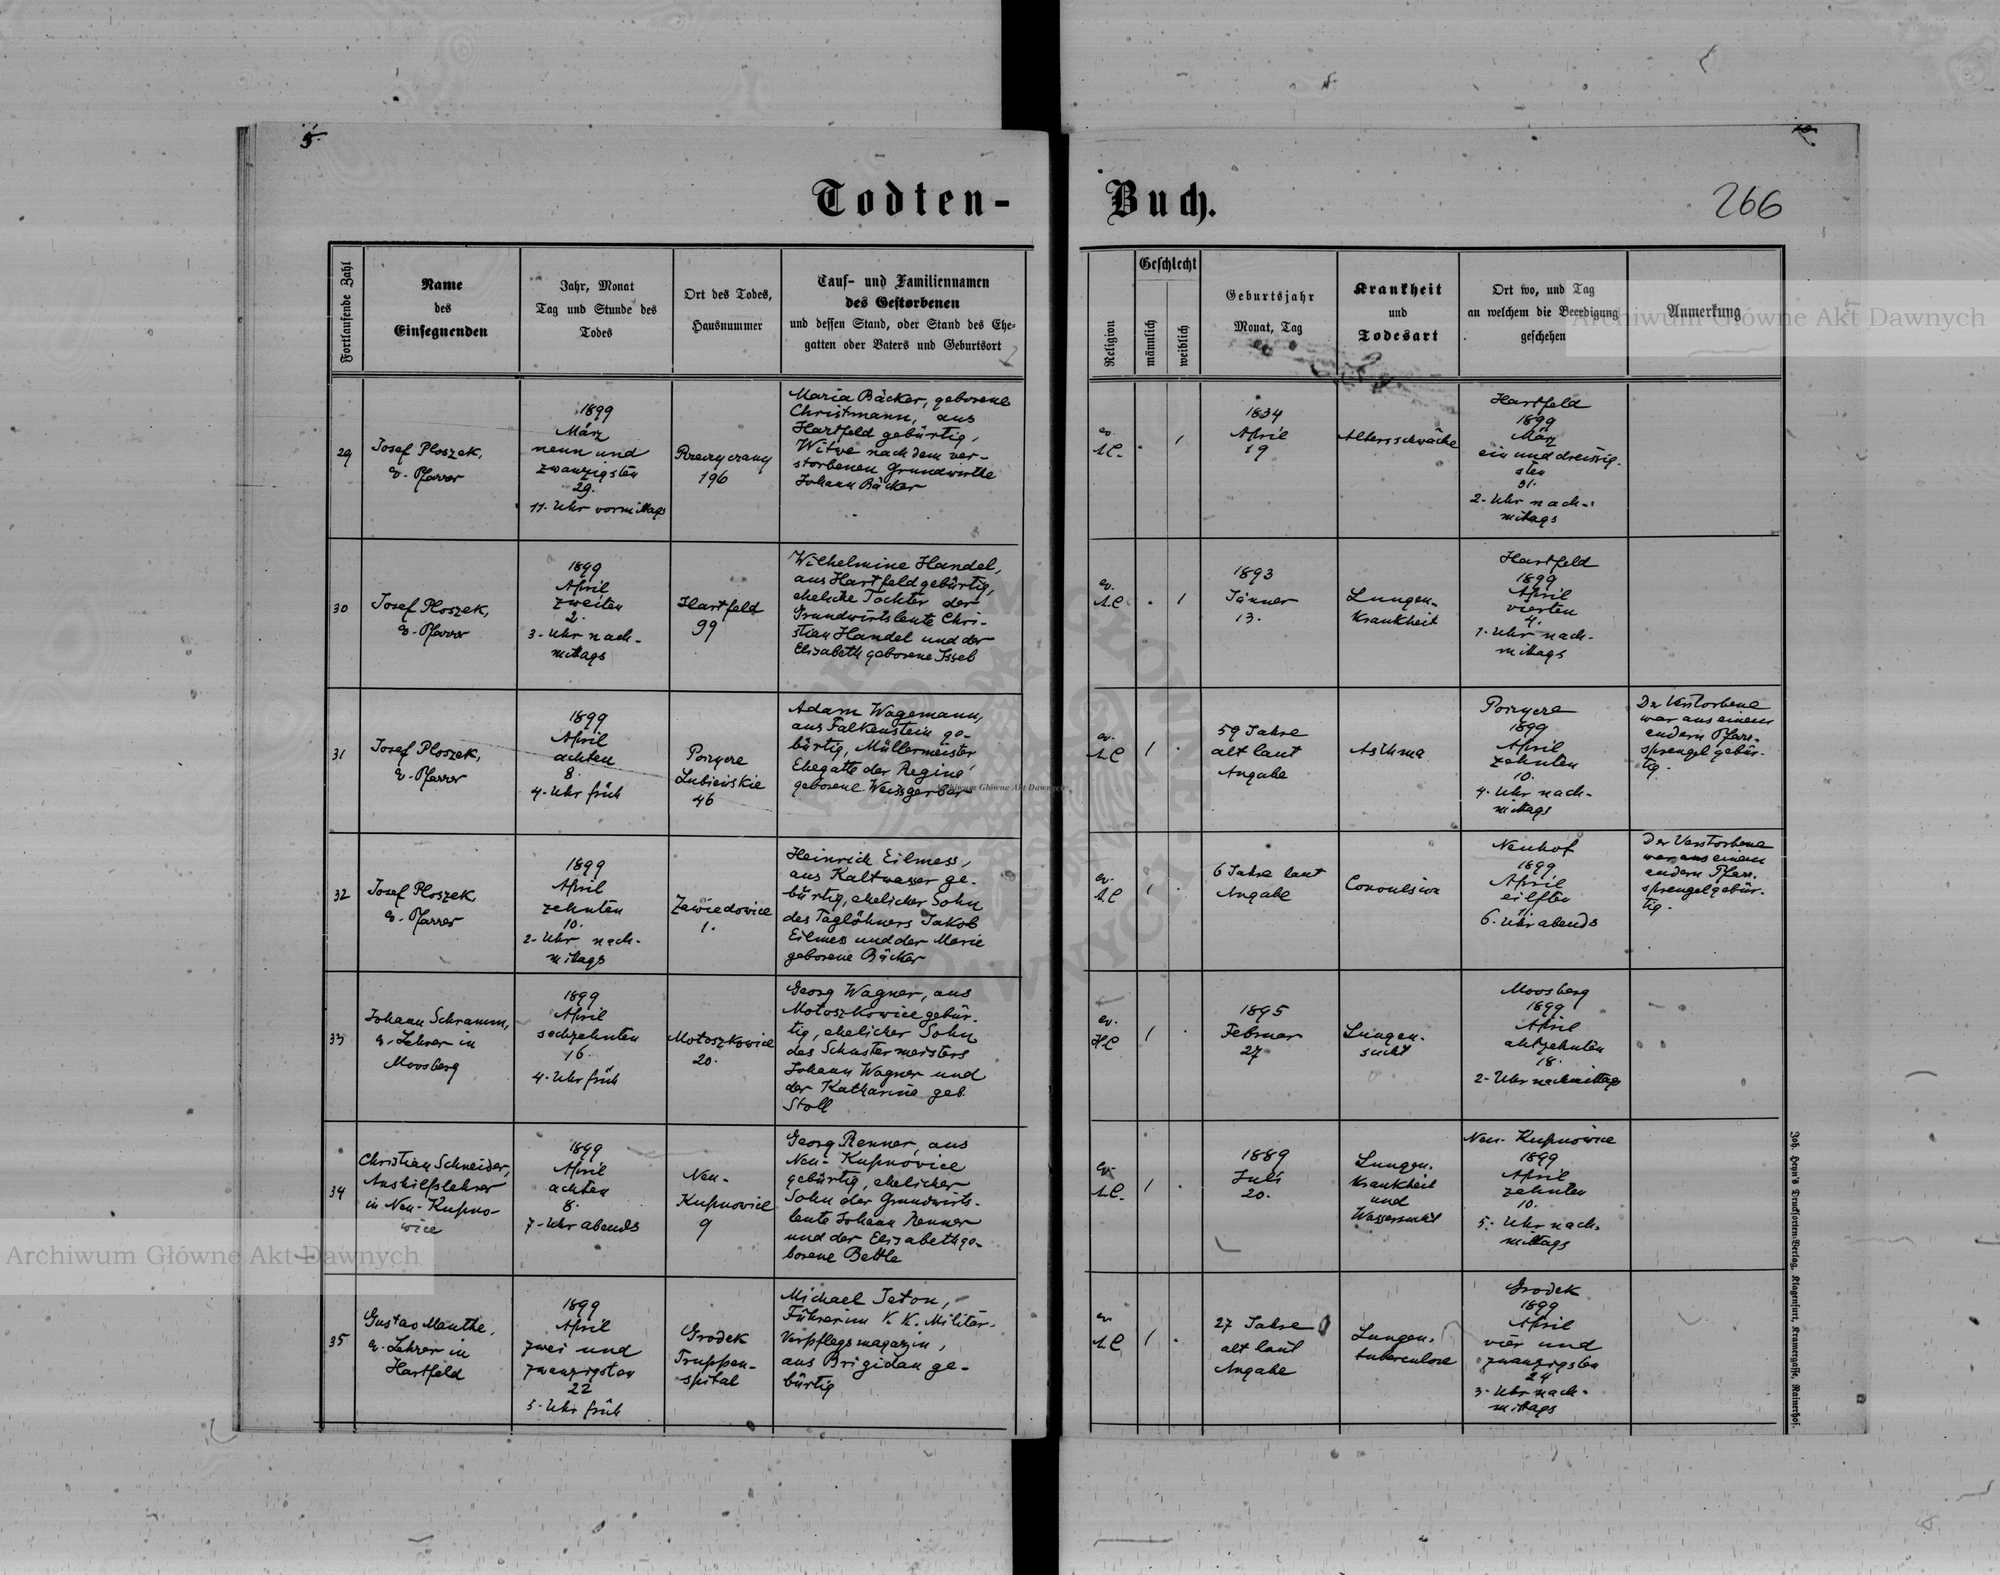 5.
Todten-
Buch.
266
Fortlaufende Zahl
Name
des
Einsegnenden
Jahr, Monat
Tag und Stunde des
Todes
Ort des Todes,
Hausnummer
Tauf- und Familiennamen
des Gestorbenen
und dessen Stand, oder Stand des Ehe-
gatten oder Vaters und Geburtsort
Religion
Geschlecht
männlich
weiblich
Geburtsjahr
Monat, Tag
Krankheit
und
Todesart
Ort wo, und Tag
an welchem die Beerdigung
geschehen
Anmerkung
29
Josef Ploszek,
ev. Pfarrer
1899
März
neun und
zwanzigsten
29.
11. Uhr vormittags
Rzeczyczany
196
Maria Bäcker, geborene
Christmann, aus
Hartfeld gebürtig,
Witwe nach dem ver-
storbenen Grundwirthe
Johann Bäcker
ev.
A.C.
1
1834
April
19
Altersschwäche
Hartfeld
1899
März
ein und dreissig-
sten
31.
2. Uhr nach-
mittags
30
Josef Ploszek,
ev. Pfarrer
1899
April
zweiten
2.
3. Uhr nach-
mittags
Hartfeld
99
Wilhelmine Handel,
aus Hartfeld gebürtig,
eheliche Tochter der
Grundwirtsleute Chri-
stian Handel und der
Elisabeth geborene Issel
ev.
A.C.
1
1893
Jänner
13.
Lungen-
krankheit
Hartfeld
1899
April
vierten
4.
1. Uhr nach-
mittags
31
Josef Ploszek,
ev. Pfarrer
1899
April
achten
8.
4. Uhr früh
Porzycze
Lubieńskie
46
Adam Wagemann,
aus Falkenstein ge-
bürtig, Müllermeister
Ehegatte der Regine
geborene Weissgerber
ev.
A.C.
1
59 Jahre
alt laut
Angabe
Asthma
Porzycze
1899
April
zehnten
10.
4. Uhr nach-
mittags
Der Verstorbene
war aus einem
andern Pfarr-
sprengel gebür-
tig.
32
Josef Ploszek,
ev. Pfarrer
1899
April
zehnten
10.
2. Uhr nach-
mittags
Zawiedowice
1.
Heinrich Eilmess,
aus Kaltwasser ge-
bürtig, ehelicher Sohn
des Taglöhners Jakob
Eilmess und der Marie
geborene Bäcker
ev.
A.C.
1
6 Jahre laut
Angabe
Convulsion
Neuhof
1899
April
eilften
11.
6. Uhr abends
Der Verstorbene
war aus einem
andern Pfarr-
sprengel gebür-
tig.
33
Johann Schramm,
ev. Lehrer in
Moosberg
1899
April
sechzehnten
16.
4. Uhr früh
Motoszkowice
20.
Georg Wagner, aus
Motoszkowice gebür-
tig, ehelicher Sohn
des Schustermeisters
Johann Wagner und
der Katharine geb.
Stoll
ev.
H.C.
1
1895
Februar
27
Lungen-
sucht
Moosberg
1899
April
achtzehnten
18.
2. Uhr nachmittags
34
Christian Schneider,
Aushilfslehrer
in Neu-Kupno-
wice
1899
April
achten
8.
7. Uhr abends
Neu-
Kupnowice
9
Georg Renner, aus
Neu-Kupnowice
gebürtig, ehelicher
Sohn der Grundwirts-
leute Johann Renner
und der Elisabeth ge-
borene Bettle
ev.
A.C.
1
1889
Juli
20.
Lungen-
krankheit
und
Wassersucht
Neu-Kupnowice
1899
April
zehnten
10.
5. Uhr nach-
mittags
35
Gustav Manthe,
ev. Lehrer in
Hartfeld
1899
April
zwei und
zwanzigsten
22
5. Uhr früh
Grodek
Truppen-
spital
Michael Jeton,
Führer im K.K. Militär-
Verpflegsmagazin,
aus Brigidau ge-
bürtig
ev.
A.C.
1
27 Jahre
alt laut
Angabe
Lungen-
tuberculose
Grodek
1899
April
vier und
zwanzigsten
24
3. Uhr nach-
mittags
Joh. Heyn's Drucksorten-Verlag, Klagenfurt, Kramergasse, Rainerhof.
Archiwum Główne Akt Dawnych
Archiwum Główne Akt Dawnych
Archiwum Główne Akt Dawnych